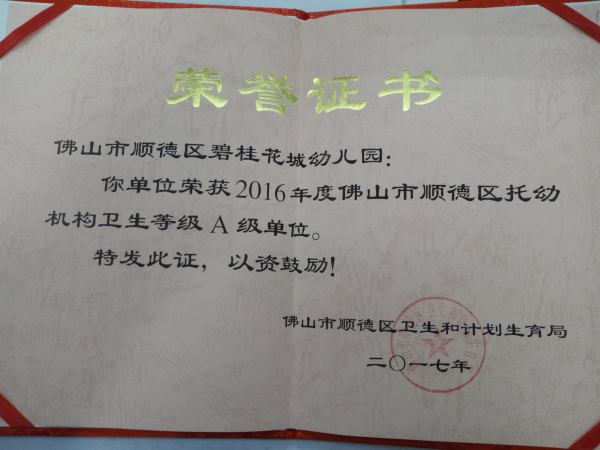 荣誉证书
佛山市顺德区碧桂花城幼儿园：
你单位荣获2016年度佛山市顺德区托幼
机构卫生等级 A 级单位。
特发此证，以资鼓励！
佛山市顺德区卫生和计划生育局
二〇一七年